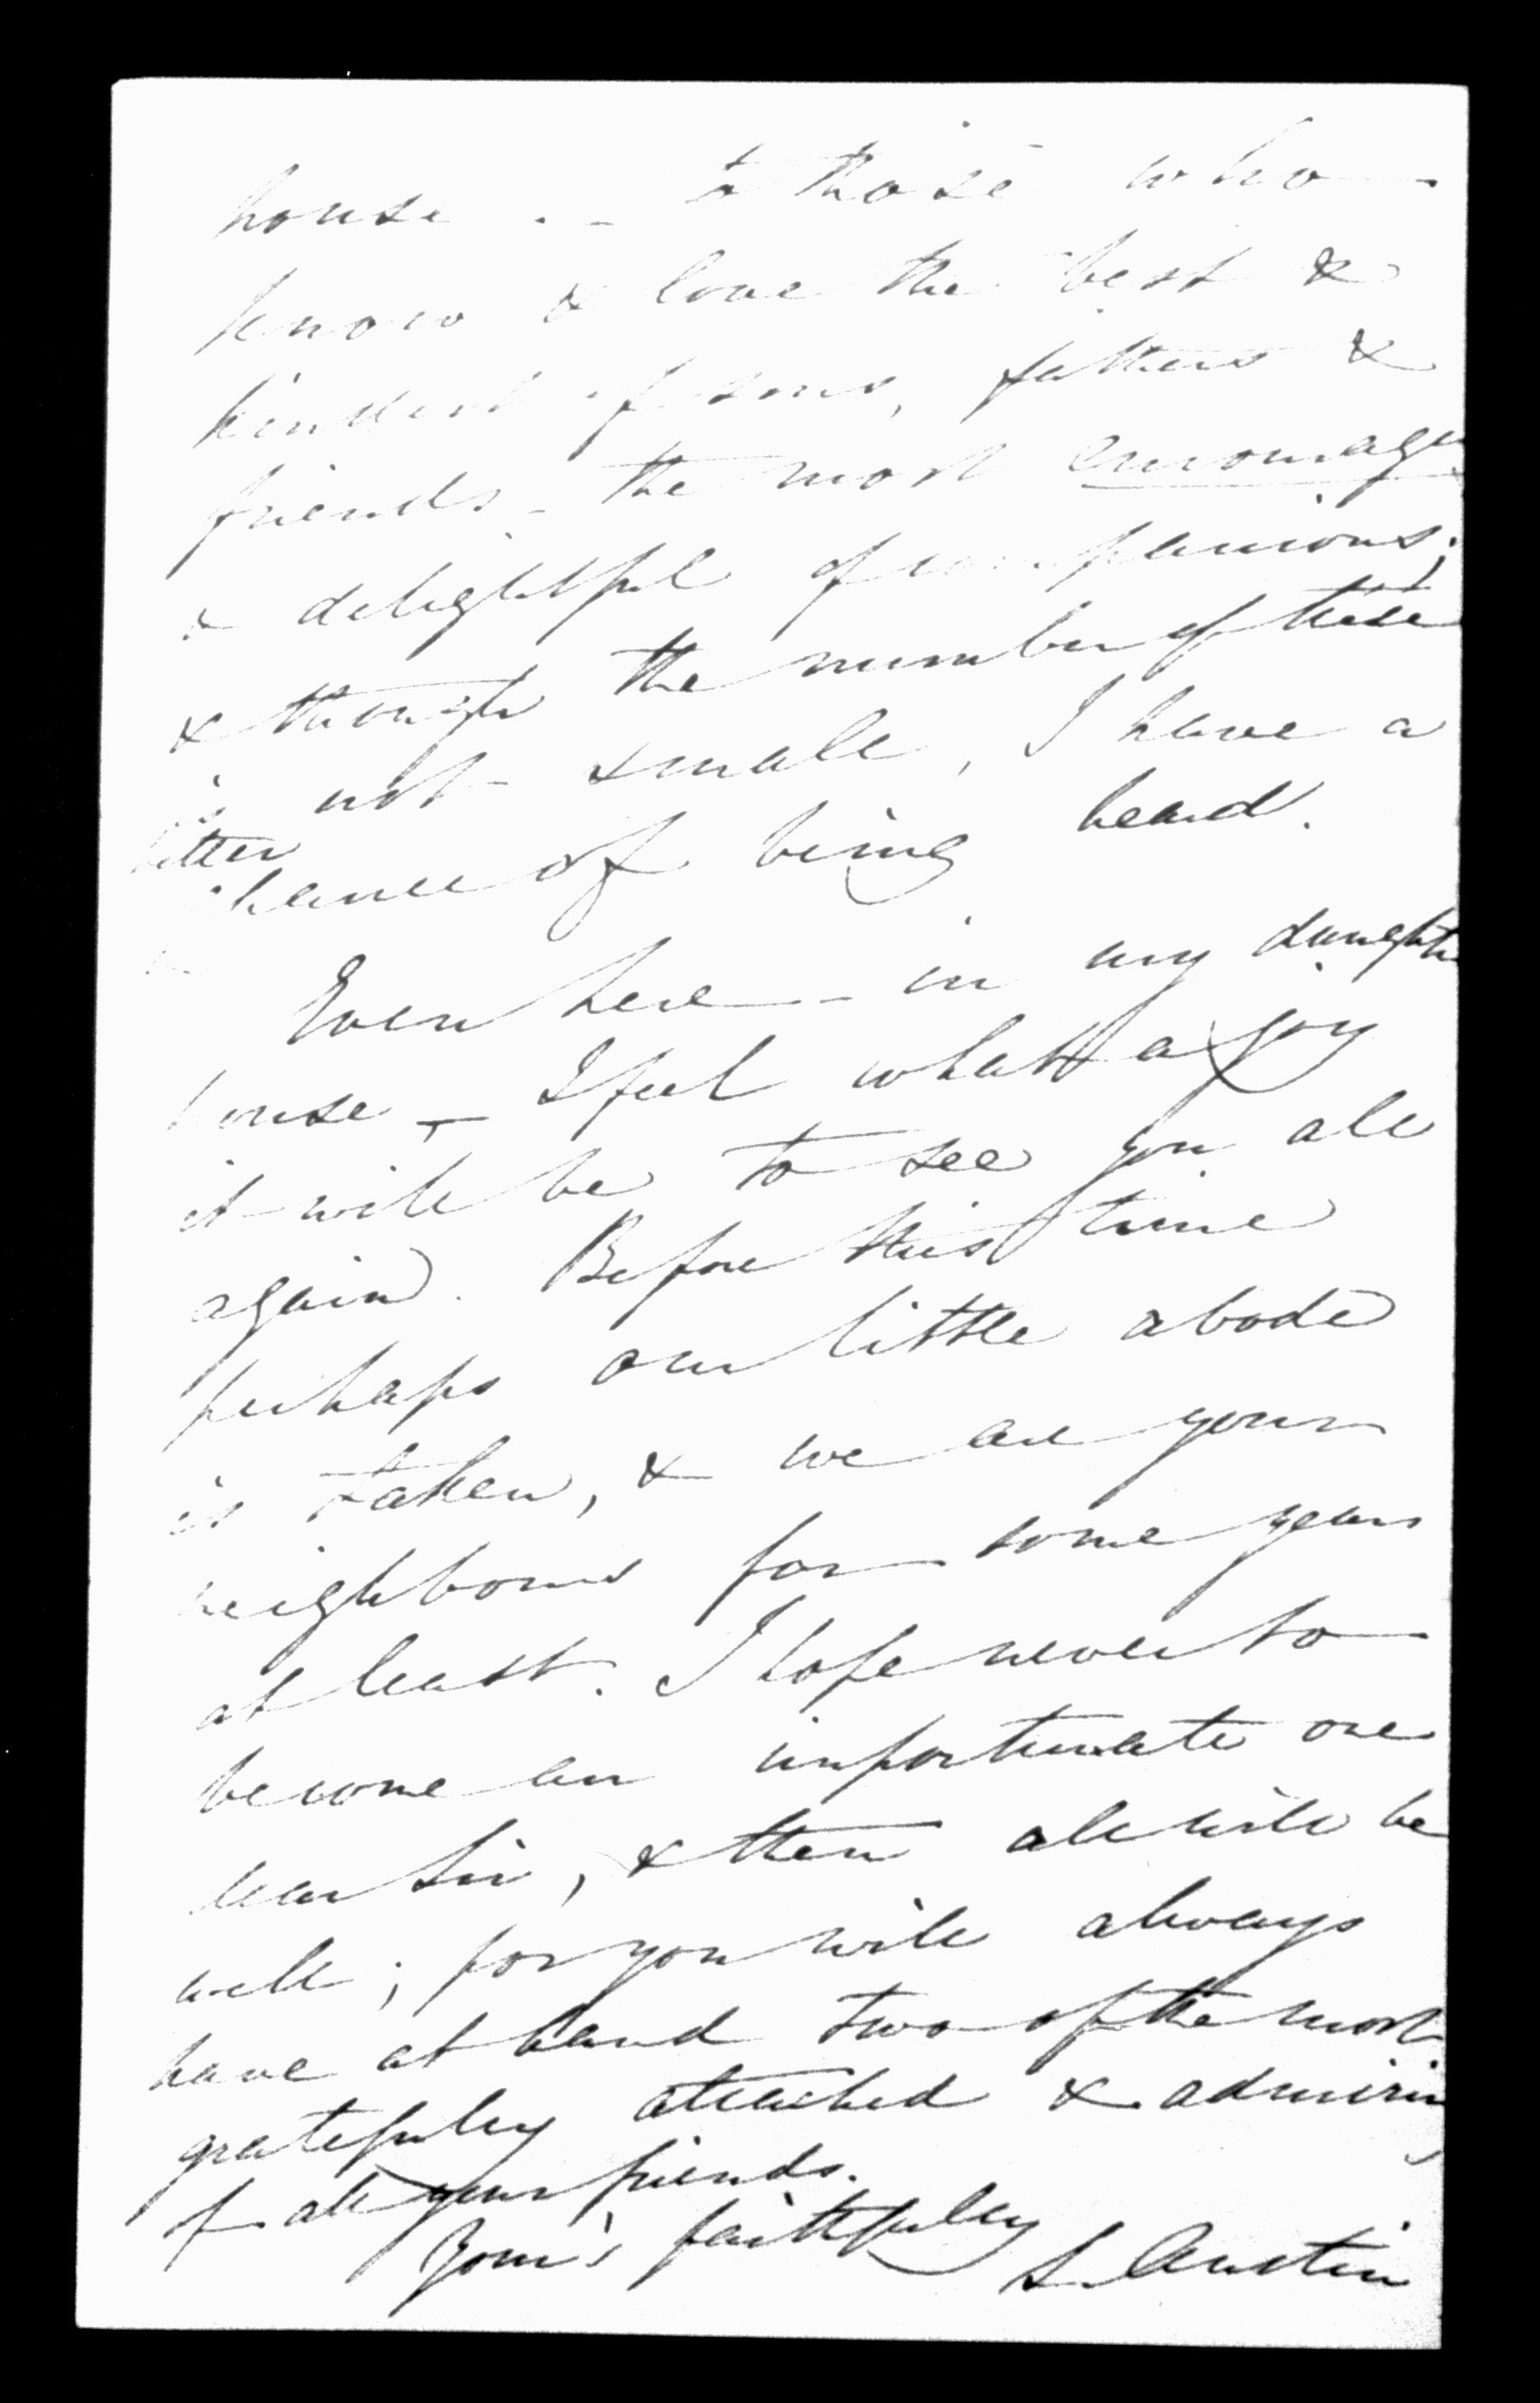 house - to those who
know & love the best &
kindest of sons, fathers &
friends - the most encourag
& delightful of companions;
& though the number of these
is not small, I have a
better
chance of being heard.
Even here - in my daught
house - I feel what a joy
it will be to see you all
again. Before this time
perhaps our little abode
is taken, & we are your
neighbours for some years
at least. I hope never to
become an importunate one
dear Sir, & then all will be
well; for you will always
have at hand two of the most
gratefully attached & admirin
of all your friends.
Your's faithfully
S. Austin